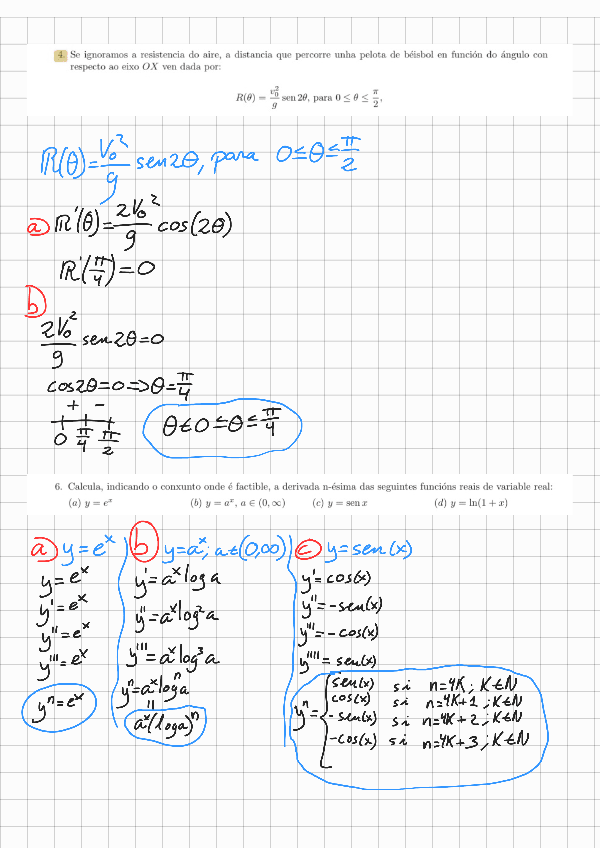 4. Se ignoramos a resistencia do aire, a distancia que percorre unha pelota de béisbol en función do ángulo con
respecto ao eixo OX ven dada por:
R(θ) = v₀²/g sen 2θ, para 0 ≤ θ ≤ π/2,
R(θ)=V₀²/g sen2θ, para 0≤θ≤π/2
a) R'(θ)=2V₀²/g cos(2θ)
R'(π/4)=0
b)
2V₀²/g sen2θ=0
cos2θ=0=>θ=π/4
+ −
0 π/4 π/2
θ∈0≤θ≤π/4
6. Calcula, indicando o conxunto onde é factible, a derivada n-ésima das seguintes funcións reais de variable real:
(a) y = eˣ (b) y = aˣ, a ∈ (0, ∞) (c) y = sen x (d) y = ln(1 + x)
a) y=eˣ
y=eˣ
y'=eˣ
y''=eˣ
y'''=eˣ
yⁿ=eˣ
b) y=aˣ; a∈(0,∞)
y'=aˣ log a
y''=aˣ log² a
y'''=aˣ log³ a
yⁿ=aˣ logⁿ a
=
aˣ(log a)ⁿ
c) y=sen(x)
y'=cos(x)
y''=-sen(x)
y'''=-cos(x)
y''''=sen(x)
yⁿ={ sen(x) si n=4K; K∈N
cos(x) si n=4K+1; K∈N
-sen(x) si n=4K+2; K∈N
-cos(x) si n=4K+3; K∈N